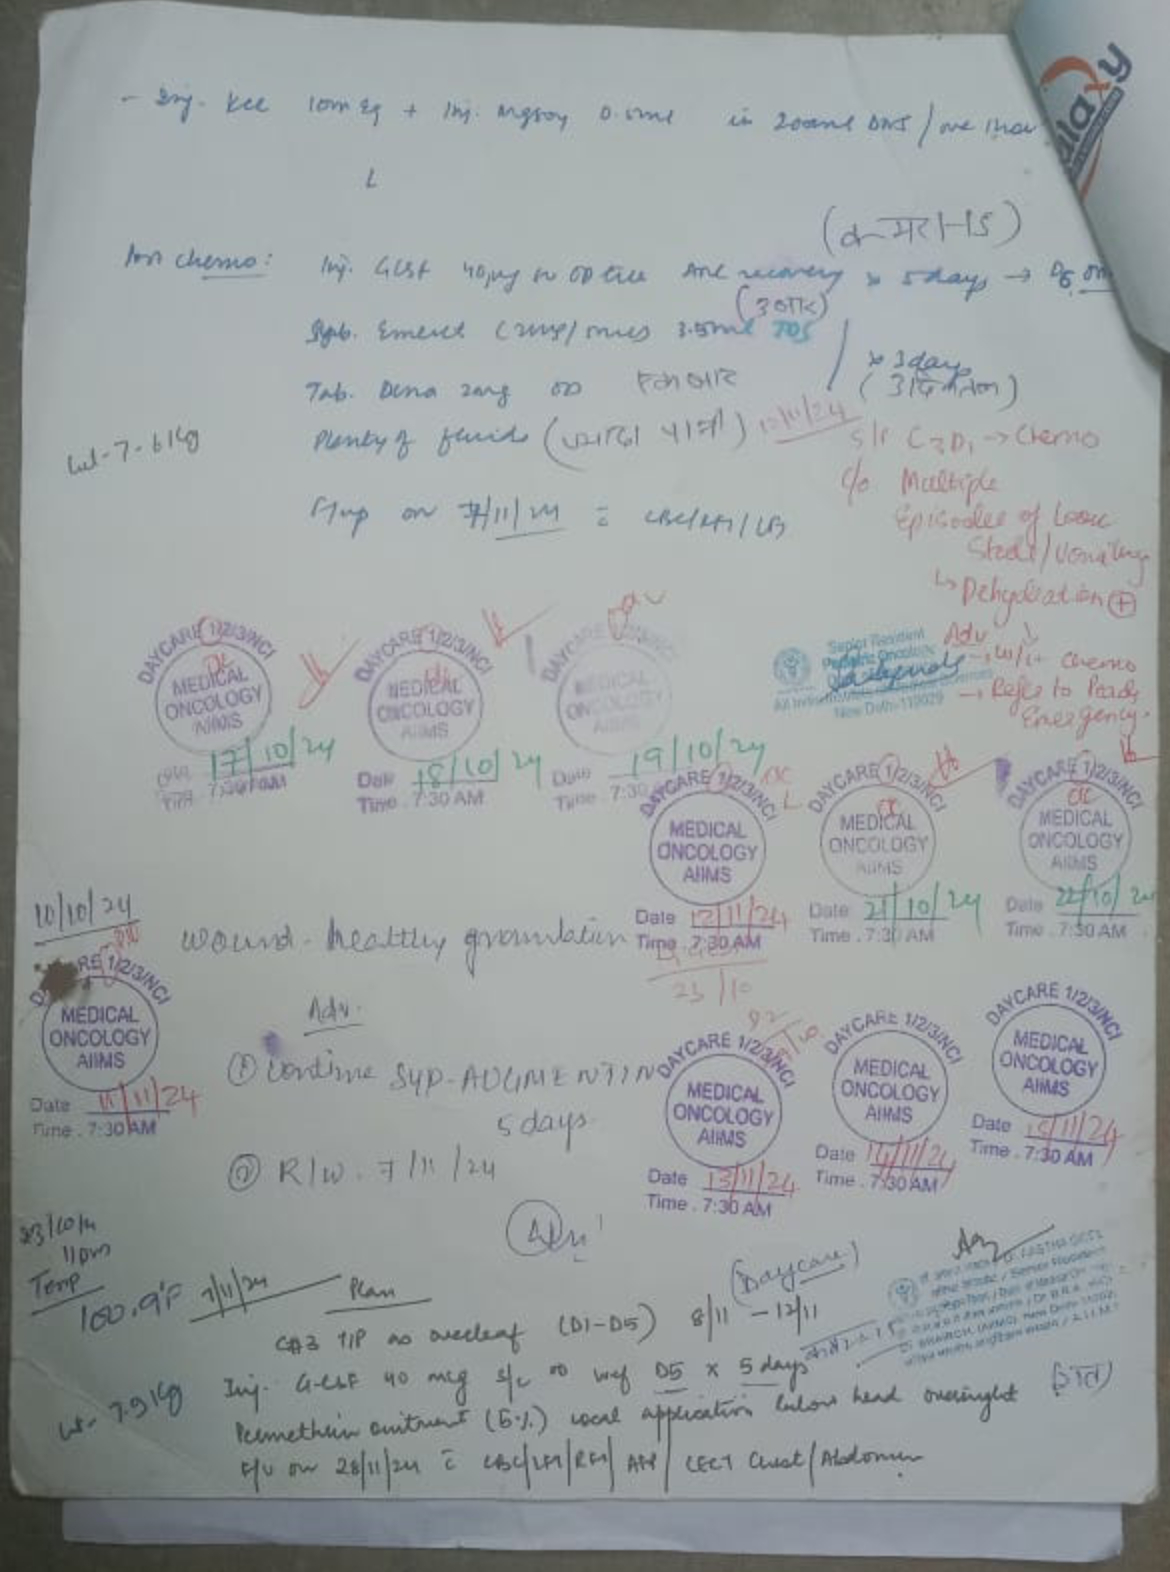 - Inj. KCl 10mEq + Inj. MgSO4 0.5ml in 200ml DNS / one hour
(कमरा-15)
Post chemo: Inj. GCSF 40µg sc OD till ANC recovery x 5 days → D6 on
(3 बार)
Syp. Emeset (2mg/5ml) 3.5ml TDS
x 3 days
(3 दिन तक)
Tab. Dexa 2mg OD एक बार
Wt-7.61Kg
Plenty of fluids (ज्यादा पानी)
F/up on 7/11/24 c̄ CBC/RFT/LFT
12/11/24
S/P C3D1 → Chemo
c/o Multiple
Episodes of Loose
Stool/Vomiting
↳ Dehydration (+)
Adv
→ w/h Chemo
→ Refer to Paeds
Emergency.
Senior Resident
Pediatric Oncology
New Delhi-110029
DAYCARE 1/2/3/NCI
MEDICAL
ONCOLOGY
AIIMS
Date 17/10/24
Time . 7:30 AM
DAYCARE 1/2/3/NCI
MEDICAL
ONCOLOGY
AIIMS
Date 18/10/24
Time . 7:30 AM
DAYCARE
MEDICAL
ONCOLOGY
AIIMS
Date 19/10/24
Time . 7:30
DAYCARE 1/2/3/NCI
MEDICAL
ONCOLOGY
AIIMS
Date 12/11/24
Time . 7:30 AM
23/10
DAYCARE 1/2/3/NCI
MEDICAL
ONCOLOGY
AIIMS
Date 21/10/24
Time . 7:30 AM
DAYCARE 1/2/3/NCI
MEDICAL
ONCOLOGY
AIIMS
Date 22/10/24
Time . 7:30 AM
10/10/24
Wound - healthy granulation
DAYCARE 1/2/3/NCI
MEDICAL
ONCOLOGY
AIIMS
Date 11/11/24
Time . 7:30 AM
Adv.
① Continue Syp-AUGMENTIN
5 days
② R/W. 7/11/24
DAYCARE 1/2/3/NCI
MEDICAL
ONCOLOGY
AIIMS
Date 13/11/24
Time . 7:30 AM
DAYCARE 1/2/3/NCI
MEDICAL
ONCOLOGY
AIIMS
Date 14/11/24
Time . 7:30 AM
DAYCARE 1/2/3/NCI
MEDICAL
ONCOLOGY
AIIMS
Date 15/11/24
Time . 7:30 AM
23/10/24
11pm
Temp
100.9°F
7/11/24
Plan
(Daycare)
C#3 as overleaf (D1-D5) 8/11 - 12/11
Wt- 7.9Kg
Inj. G-CSF 40 mcg s/c OD wef D5 x 5 days
Permethrin ointment (5%) local application below head overnight
F/U on 28/11/24 c̄ CBC/LFT/RFT/AFP/CECT Chest/Abdomen